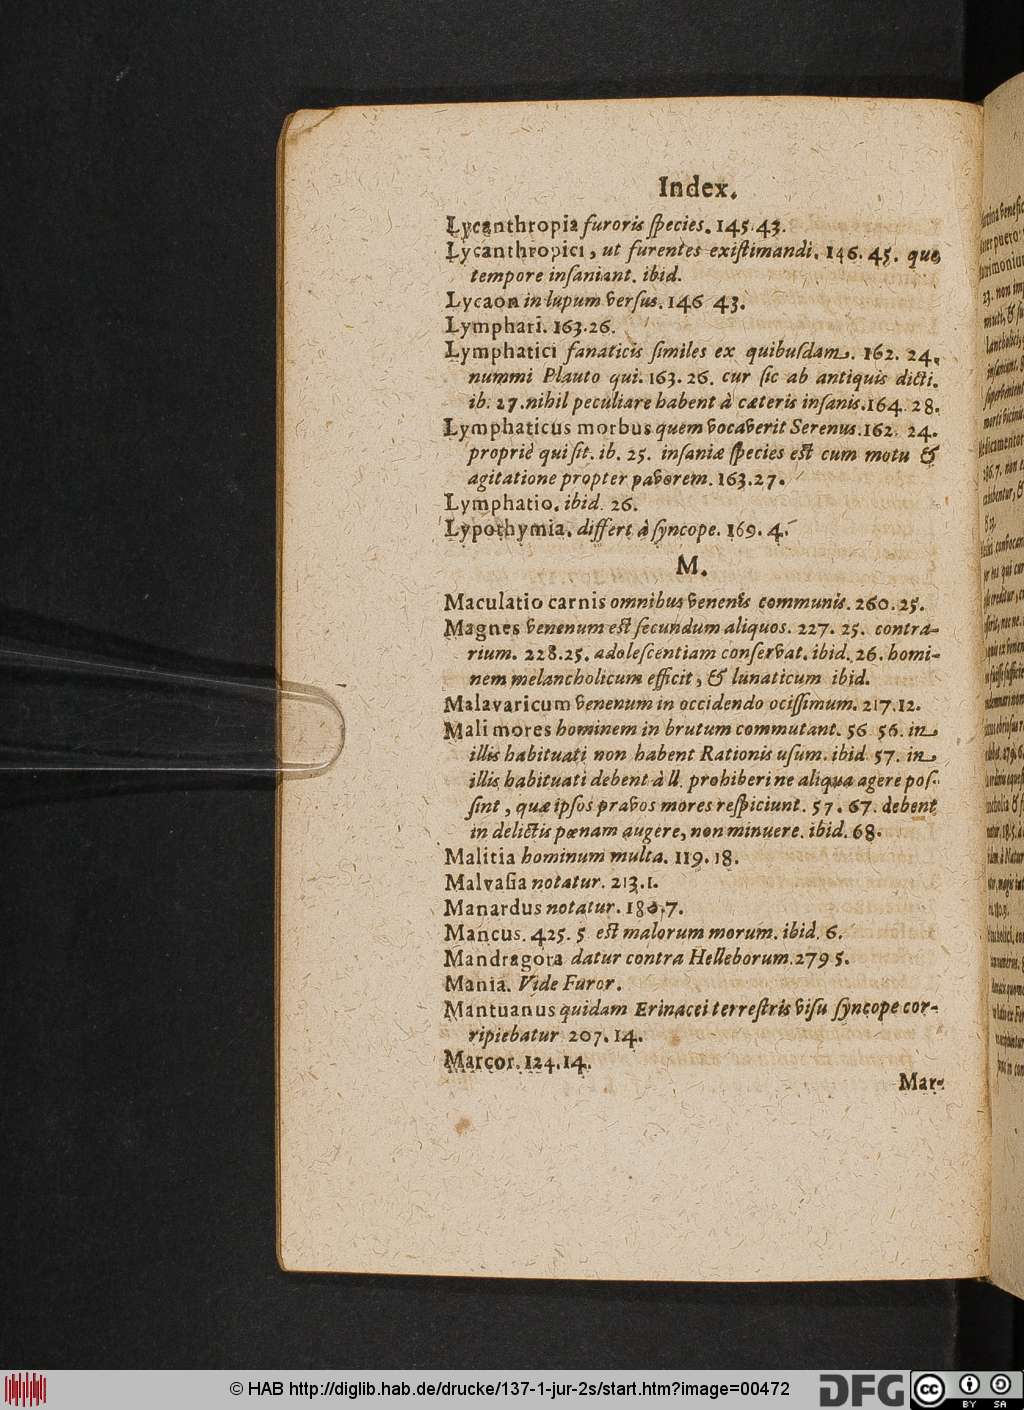 Index.
Lycanthropia furoris ſpecies. 145.43.
Lycanthropici, ut furentes exiſtimandi. 146. 45. quo
tempore inſaniant. ibid.
Lycaon in lupum verſus. 146 43.
Lymphari. 163.26.
Lymphatici fanaticis ſimiles ex quibuſdam. 162. 24.
nummi Plauto qui. 163. 26. cur ſic ab antiquis dicti.
ib. 27. nihil peculiare habent à cæteris inſanis. 164. 28.
Lymphaticus morbus quem vocaverit Serenus. 162. 24.
propriè qui ſit. ib. 25. inſaniæ ſpecies eſt cum motu &
agitatione propter pavorem. 163.27.
Lymphatio. ibid. 26.
Lypothymia. differt à ſyncope. 169. 4.
M.
Maculatio carnis omnibus venenis communis. 260. 25.
Magnes venenum eſt ſecundum aliquos. 227. 25. contra-
rium. 228.25. adoleſcentiam conſervat. ibid. 26. homi-
nem melancholicum efficit, & lunaticum ibid.
Malavaricum venenum in occidendo ociſſimum. 217.12.
Mali mores hominem in brutum commutant. 56 56. in
illis habituati non habent Rationis uſum. ibid 57. in
illis habituati debent à ll. prohiberi ne aliqua agere poſ-
ſint, quæ ipſos pravos mores reſpiciunt. 57. 67. debent
in delictis pœnam augere, non minuere. ibid. 68.
Malitia hominum multa. 119. 18.
Malvaſia notatur. 213.1.
Manardus notatur. 180.7.
Mancus. 425. 5 eſt malorum morum. ibid. 6.
Mandragora datur contra Helleborum. 279 5.
Mania. Vide Furor.
Mantuanus quidam Erinacei terreſtris viſu ſyncope cor-
ripiebatur 207. 14.
Marcor. 124.14.
Mar-
© HAB http://diglib.hab.de/drucke/137-1-jur-2s/start.htm?image=00472
DFG
cc
BY SA